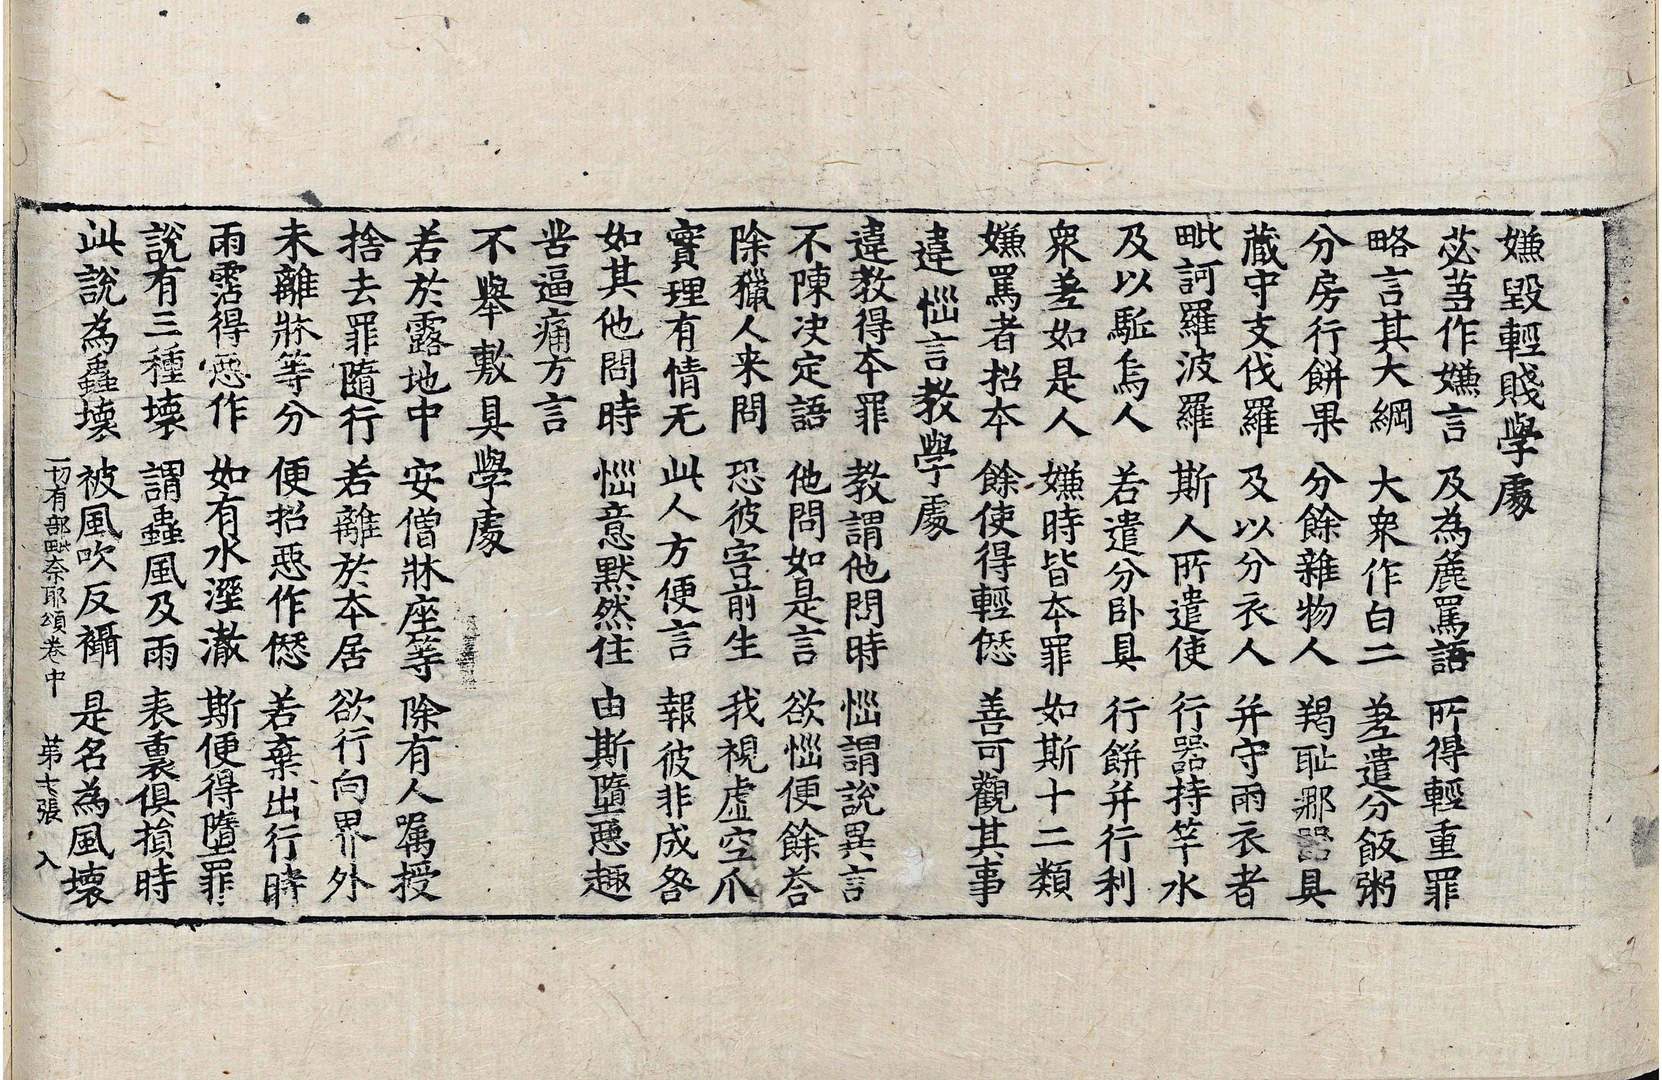 嫌毀輕賤學處
苾芻作嫌言　及為麁罵語　所得輕重罪
略言其大綱　大衆作白二　差遣分飯粥
分房行餅果　分餘雜物人　羯耻那器具
藏守支伐羅　及以分衣人　幷守雨衣者
毗訶羅波羅　斯人所遣使　行器持竿水
及以駈烏人　若遣分卧具　行餅幷行利
衆差如是人　嫌時皆本罪　如斯十二類
嫌罵者招本　餘使得輕愆　善可觀其事
違惱言教學處
違教得本罪　教謂他問時　惱謂說異言
不陳决定語　他問如是言　欲惱便餘荅
除獵人来問　恐彼害前生　我視虛空爪
實理有情无　此人方便言　報彼非成咎
如其他問時　惱意默然住　由斯墮惡趣
苦逼痛方言
不舉敷具學處
若於露地中　安僧牀座等　除有人囑授
捨去罪隨行　若離於本居　欲行向界外
未離牀等分　便招惡作愆　若棄出行時
雨霑得惡作　如有水溼澈　斯便得墮罪
說有三種壞　謂蟲風及雨　表裏俱損時
此說為蟲壞　被風吹反襵　是名為風壞
一切有部毗奈耶頌卷中　第七張　入